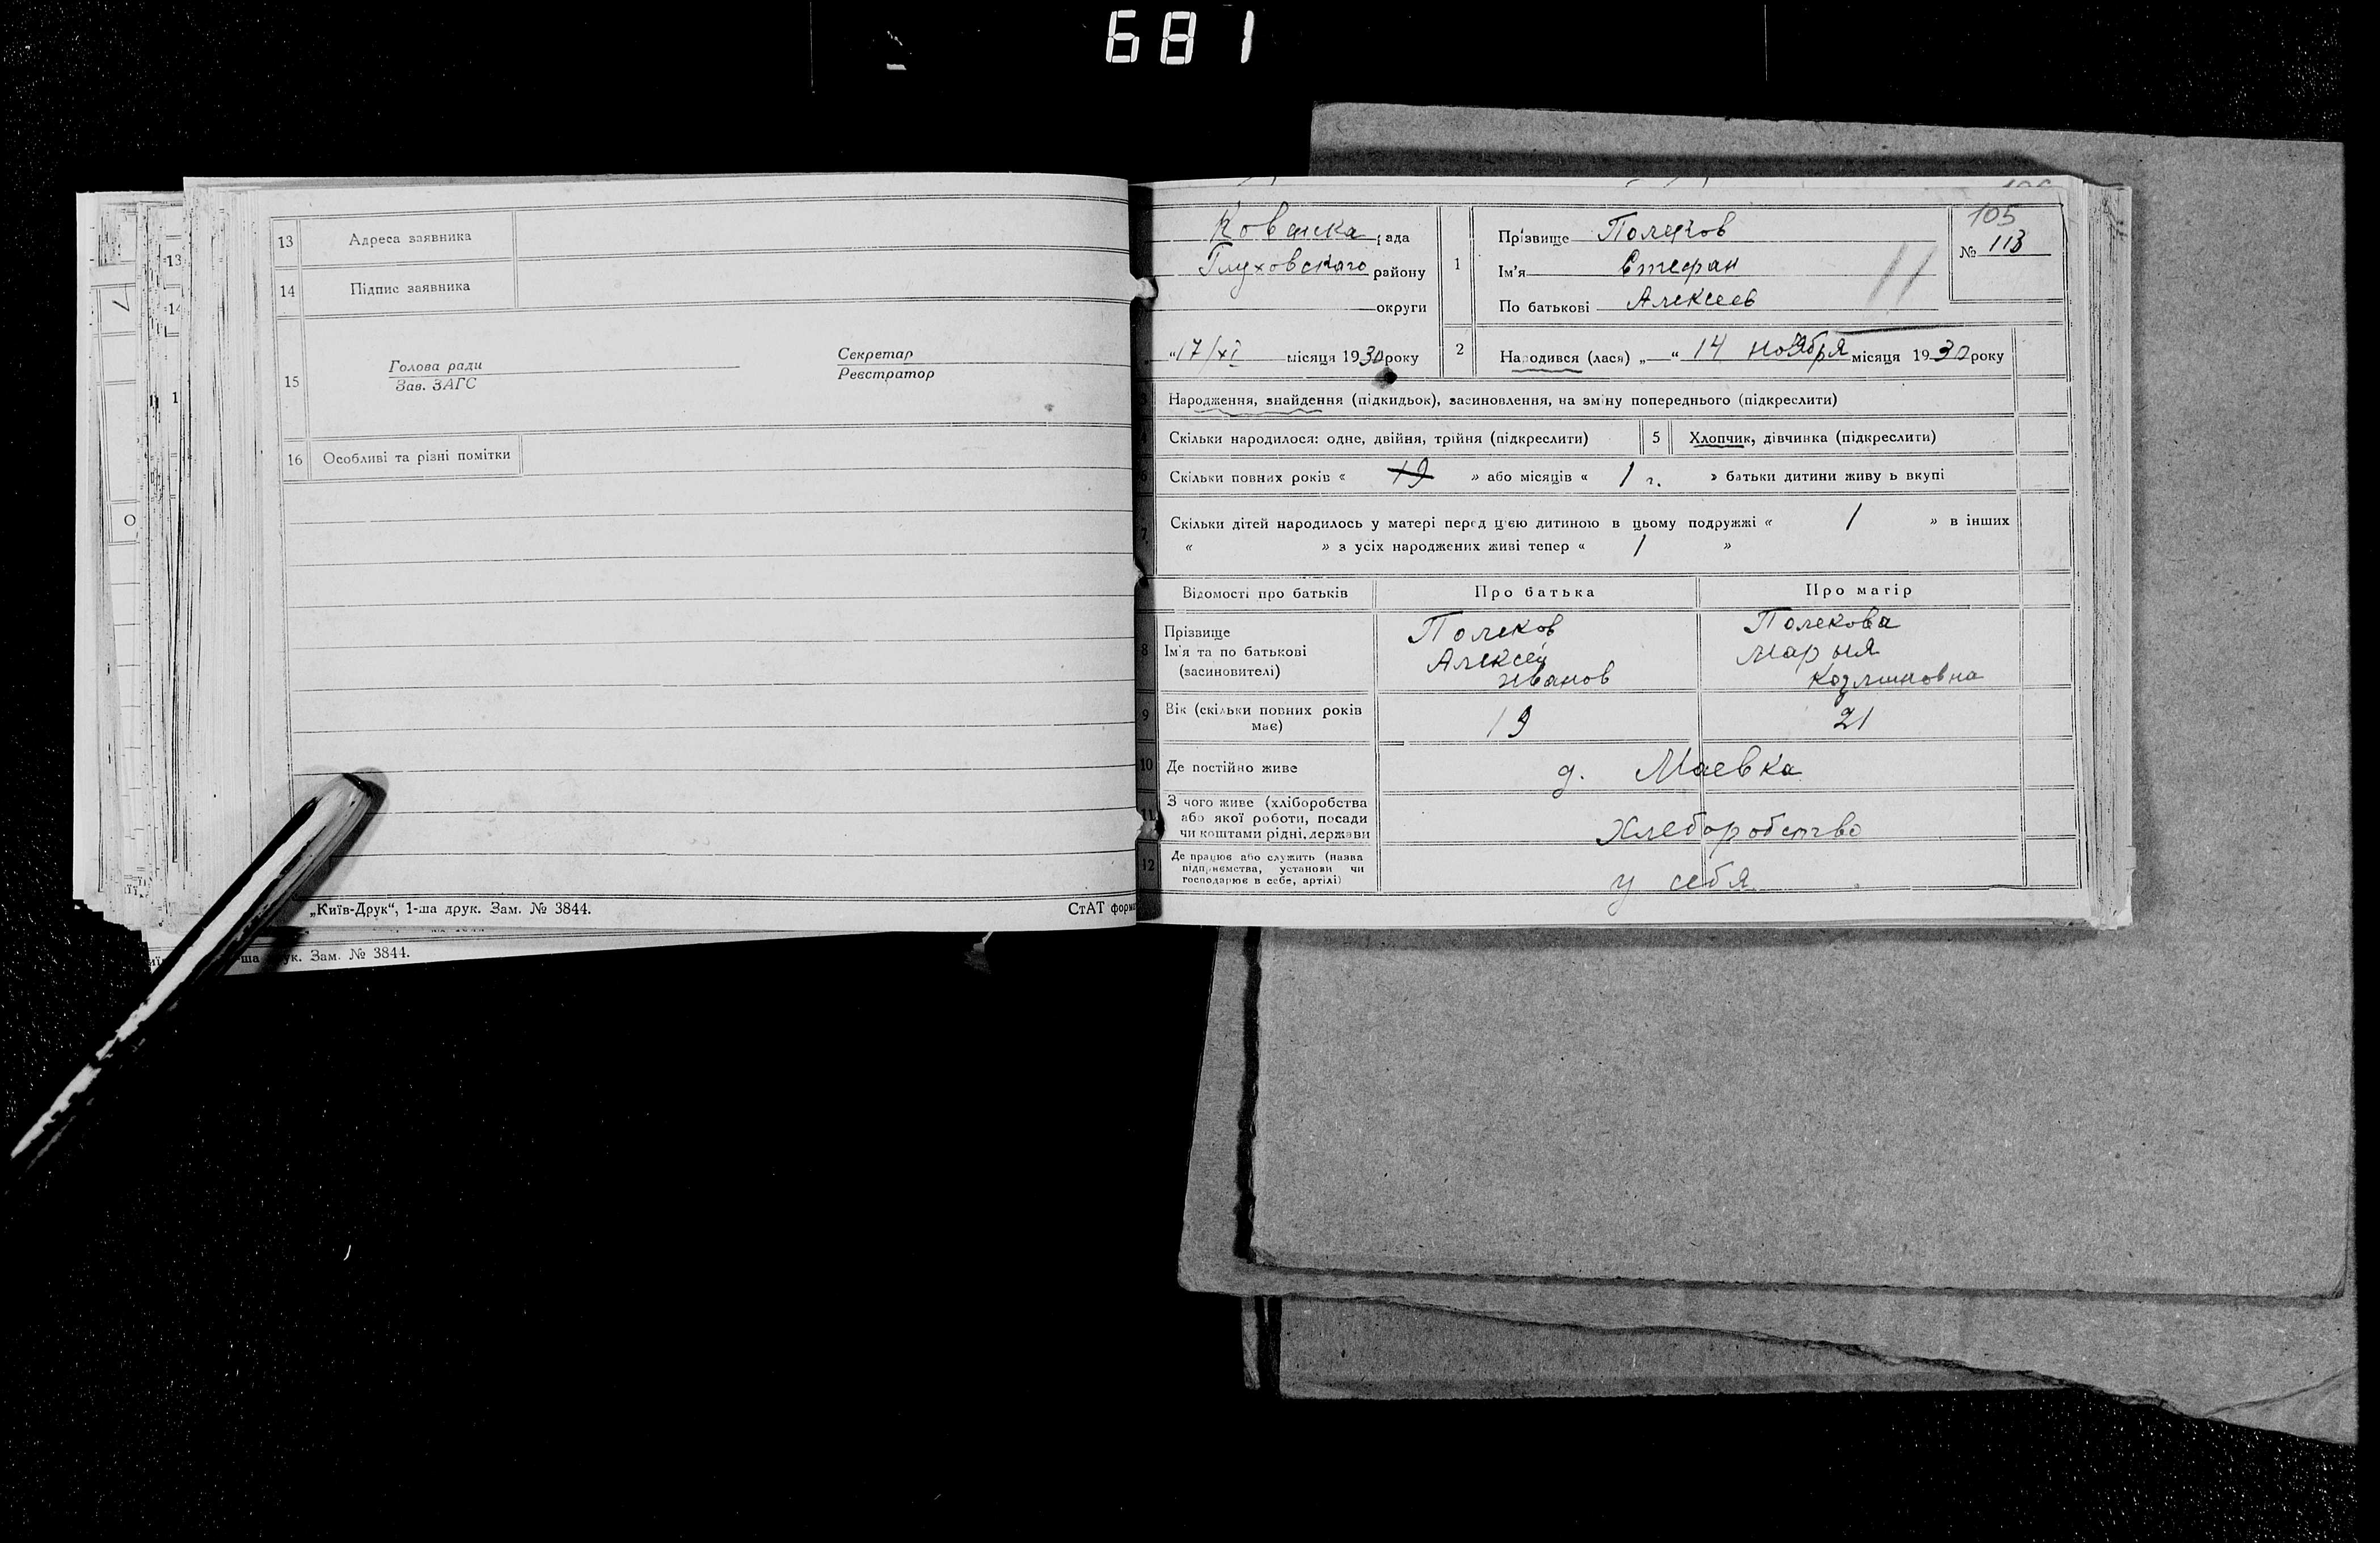 681
13 Адреса заявника
14 Підпис заявника
15 Голова ради
Зав. ЗАГС
Секретар
Реєстратор
16 Особливі та різні помітки
„Київ-Друк“, 1-ша друк. Зам. № 3844.
СтАТ форма
Зам. № 3844.
рада
Глуховскаго району
округи
„17/XI місяця 1930 року
105
№ 113
1 Прізвище Полеков
Ім'я Стефан
По батькові Алексеев
11
2 Народився (лася) „—“ 14 ноября місяця 1930 року
3 Народження, знайдення (підкидьок), засиновлення, на зміну попереднього (підкреслити)
4 Скільки народилося: одне, двійня, трійня (підкреслити)
5 Хлопчик, дівчинка (підкреслити)
6 Скільки повних років « 19 » або місяців « 1 г. » батьки дитини живуть вкупі
7 Скільки дітей народилось у матері перед цією дитиною в цьому подружжі « 1 » в інших
« » з усіх народжених живі тепер « 1 »
Відомості про батьків Про батька Про матір
8 Прізвище
Ім'я та по батькові
(засиновителі)
Полеков
Алексей
Иванов
Полекова
Мария
9 Вік (скільки повних років
має)
19 21
10 Де постійно живе д. Маевка
11 З чого живе (хліборобства
або якої роботи, посади
чи коштами рідні, держави
Хлеборобство
12 Де працює або служить (назва
підприємства, установи чи
господарює в себе, артілі)
у себя